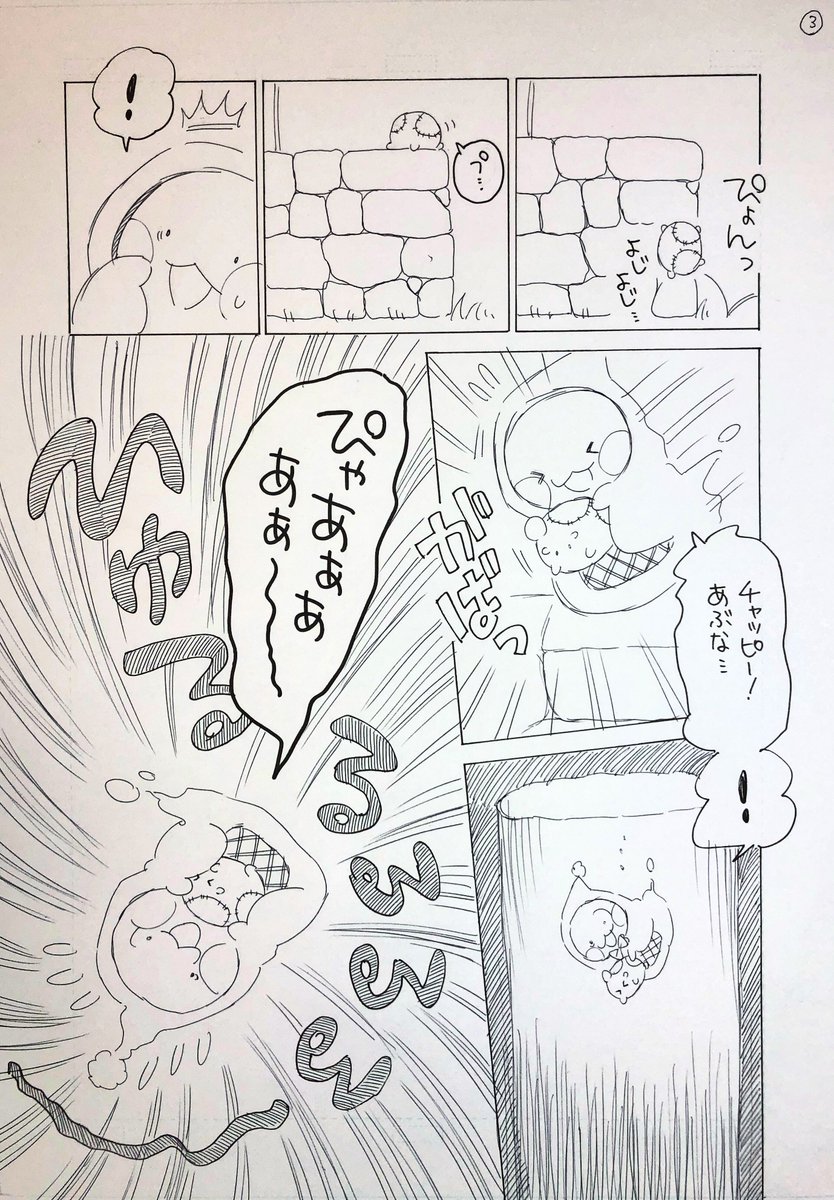 3
ぴょんっ
よじ
よじ…
プ…
!
チャッピー!
あぶな…
がばっ
!
ぴゃあぁぁ
あぁ〜
ひゅるるるるる